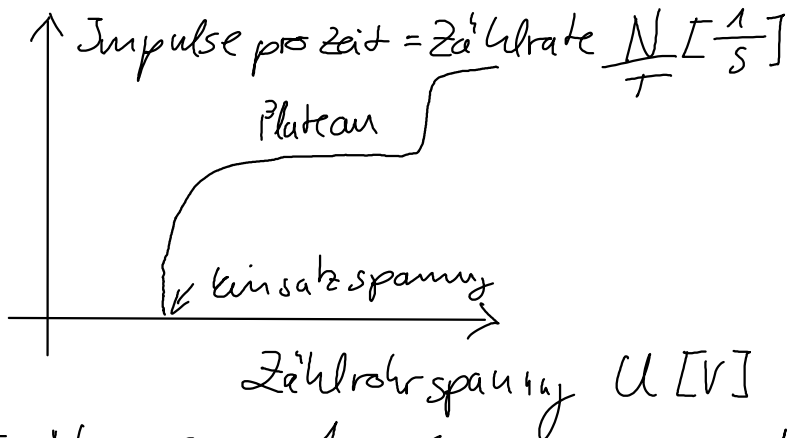 Impulse pro Zeit = Zählrate N/T [1/s]
Plateau
Einsatzspannung
Zählrohrspannung U [V]